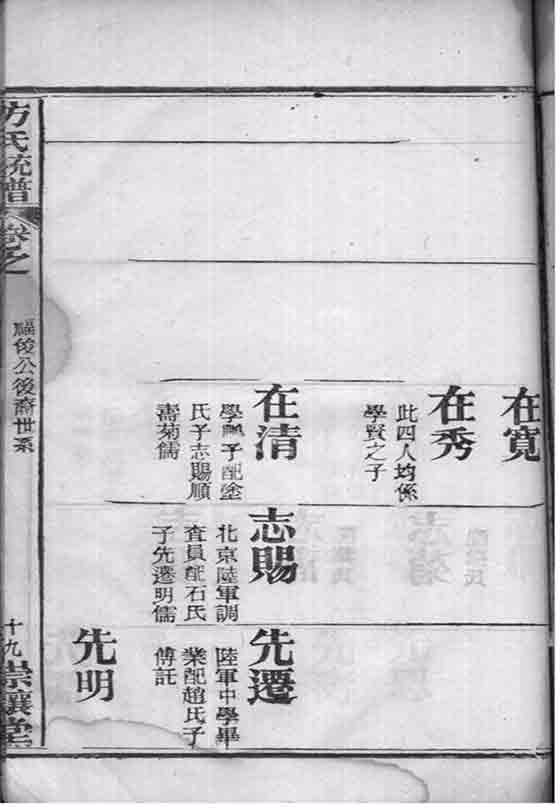 在寬
在秀
此四人均係
學賢之子
在清
學鵬子配塗
氏子志賜順
壽菊儒
志賜
北京陸軍調
查員配石氏
子先遷明儒
先遷
陸軍中學畢
業配趙氏子
傅託
先明
方氏統譜
卷之
福俊公後裔世系
十九
崇讓堂